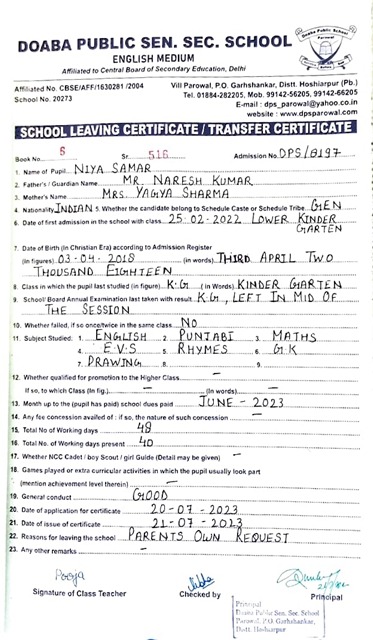 DOABA PUBLIC SEN. SEC. SCHOOL
ENGLISH MEDIUM
Affiliated to Central Board of Secondary Education, Delhi
Doaba Public School
Parowal
Affiliated No. CBSE/AFF/1630281 /2004
School No. 20273
Vill Parowal, P.O. Garhshankar, Distt. Hoshiarpur (Pb.)
Tel. 01884-282205, Mob. 99142-56205, 99142-66205
E-mail : dps_parowal@yahoo.co.in
website : www.dpsparowal.com
SCHOOL LEAVING CERTIFICATE / TRANSFER CERTIFICATE
Book No. 5 Sr. 516 Admission No. DPS/8197
1. Name of Pupil NIYA SAMAR
2. Father's / Guardian Name MR. NARESH KUMAR
3. Mother's Name MRS. YAGYA SHARMA
4. Nationality INDIAN 5. Whether the candidate belong to Schedule Caste or Schedule Tribe GEN
6. Date of first admission in the school with class 25-02-2022 LOWER KINDER
GARTEN
7. Date of Birth (In Christian Era) according to Admission Register
(in figures) 03-04-2018 (in words) THIRD APRIL TWO
THOUSAND EIGHTEEN
8. Class in which the pupil last studied (in figure) K.G (in Words) KINDER GARTEN
9. School/ Board Annual Examination last taken with result K.G, LEFT IN MID OF
THE SESSION
10. Whether failed, if so once/twice in the same class NO
11. Subject Studied: 1. ENGLISH 2. PUNJABI 3. MATHS
4. E.V.S 5. RHYMES 6. G.K
7. DRAWING 8. 9.
12. Whether qualified for promotion to the Higher Class —
If so, to which Class (In fig.) — (In words) —
13. Month up to the (pupil has paid) school dues paid JUNE - 2023
14. Any fee concession availed of : if so, the nature of such concession —
15. Total No of Working days 48
16. Total No. of Working days present 40
17. Whether NCC Cadet / boy Scout / girl Guide (Detail may be given) —
18. Games played or extra curricular activities in which the pupil usually look part
(mention achievement level therein) —
19. General conduct GOOD
20. Date of application for certificate 20-07-2023
21. Date of issue of certificate 21-07-2023
22. Reasons for leaving the school PARENTS OWN REQUEST
23. Any other remarks —
Pooja
Signature of Class Teacher Checked by Principal
Principal
Doaba Public Sen. Sec. School
Parowal, P.O. Garhshankar,
Distt. Hoshiarpur